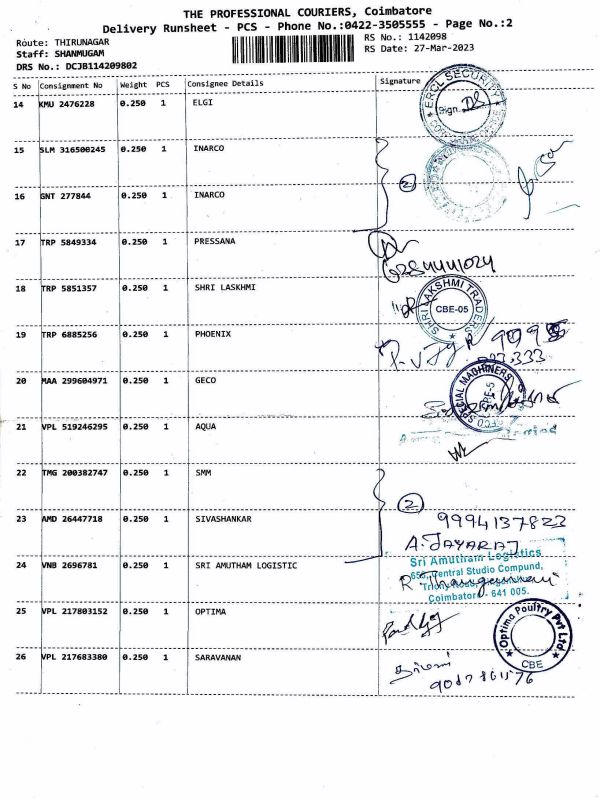 THE PROFESSIONAL COURIERS, Coimbatore
Delivery Runsheet - PCS - Phone No.:0422-3505555 - Page No.:2
Route: THIRUNAGAR
RS No.: 1142098
Staff: SHANMUGAM
RS Date: 27-Mar-2023
DRS No.: DCJB114209802
S No Consignment No Weight PCS Consignee Details Signature
14 KMU 2476228 0.250 1 ELGI
ERCL SECURITY
Sign.
15 SLM 316500245 0.250 1 INARCO
2
16 GNT 277844 0.250 1 INARCO
17 TRP 5849334 0.250 1 PRESSANA
18 TRP 5851357 0.250 1 SHRI LASKHMI
SHRI LAKSHMI TRADERS
CBE-05
19 TRP 6885256 0.250 1 PHOENIX
20 MAA 299604971 0.250 1 GECO
SPECIAL MACHINERS
CBE-5
21 VPL 519246295 0.250 1 AQUA
22 TMG 200382747 0.250 1 SMM
2
23 AMD 26447718 0.250 1 SIVASHANKAR
9994137823
A. JAYARAJ
24 VNB 2696781 0.250 1 SRI AMUTHAM LOGISTIC
Sri Amutham Logistics
Central Studio Compund,
Coimbatore 641 005.
25 VPL 217803152 0.250 1 OPTIMA
Optima Poultry Pvt Ltd
CBE
26 VPL 217683380 0.250 1 SARAVANAN